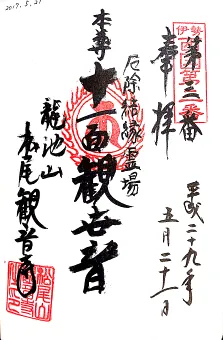 2017.5.21
伊勢
第三番
奉拝
平成二十九年
五月二十一日
厄除結縁霊場
本尊
十一面観世音
龍池山
松尾観音寺